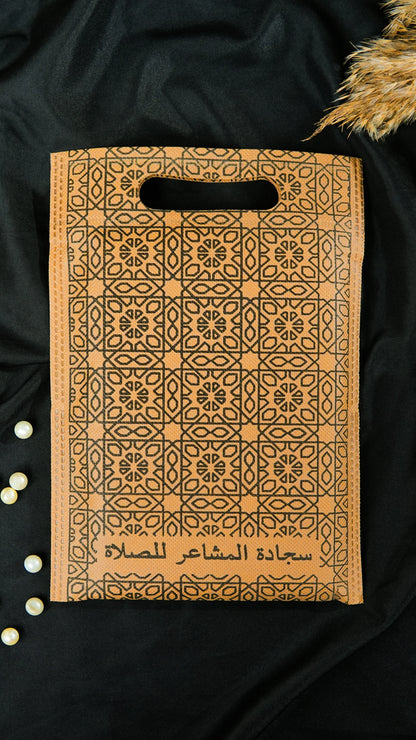 سجادة المشاعر للصلاة